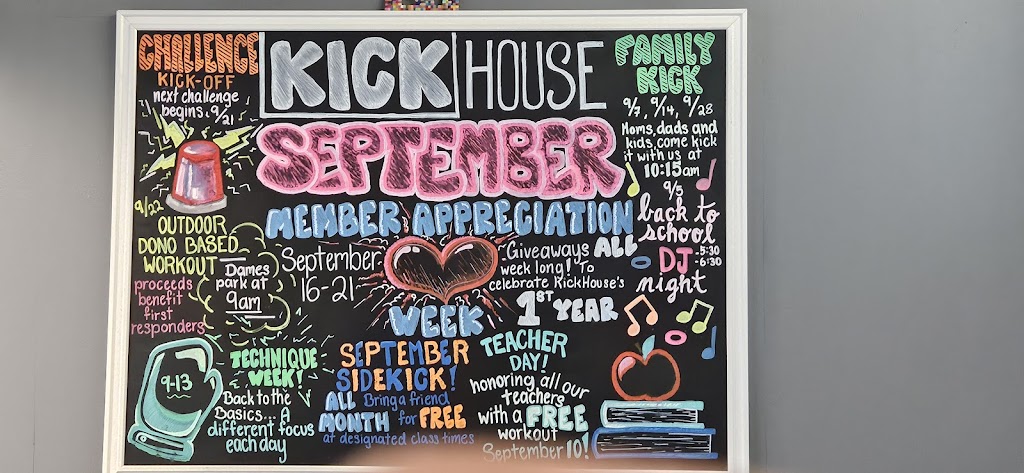 CHALLENGE
KICK-OFF
next challenge
begins 9/21
KICK HOUSE
SEPTEMBER
FAMILY
KICK
9/7, 9/14, 9/28
Moms, dads and
kids, come kick
it with us at
10:15am
9/22
OUTDOOR
DONO BASED
WORKOUT
proceeds
benefit
first
responders
Dames
park at
9am
MEMBER APPRECIATION
September
16-21
WEEK
Giveaways ALL
week long! To
celebrate KickHouse's
1ST YEAR
9/5
back to
school
DJ -5:30
-6:30
night
9-13
TECHNIQUE
WEEK!
Back to the
Basics... A
different focus
each day
SEPTEMBER
SIDEKICK!
ALL Bring a friend
MONTH for FREE
at designated class times
TEACHER
DAY!
honoring all our
teachers
with a FREE
workout
September 10!